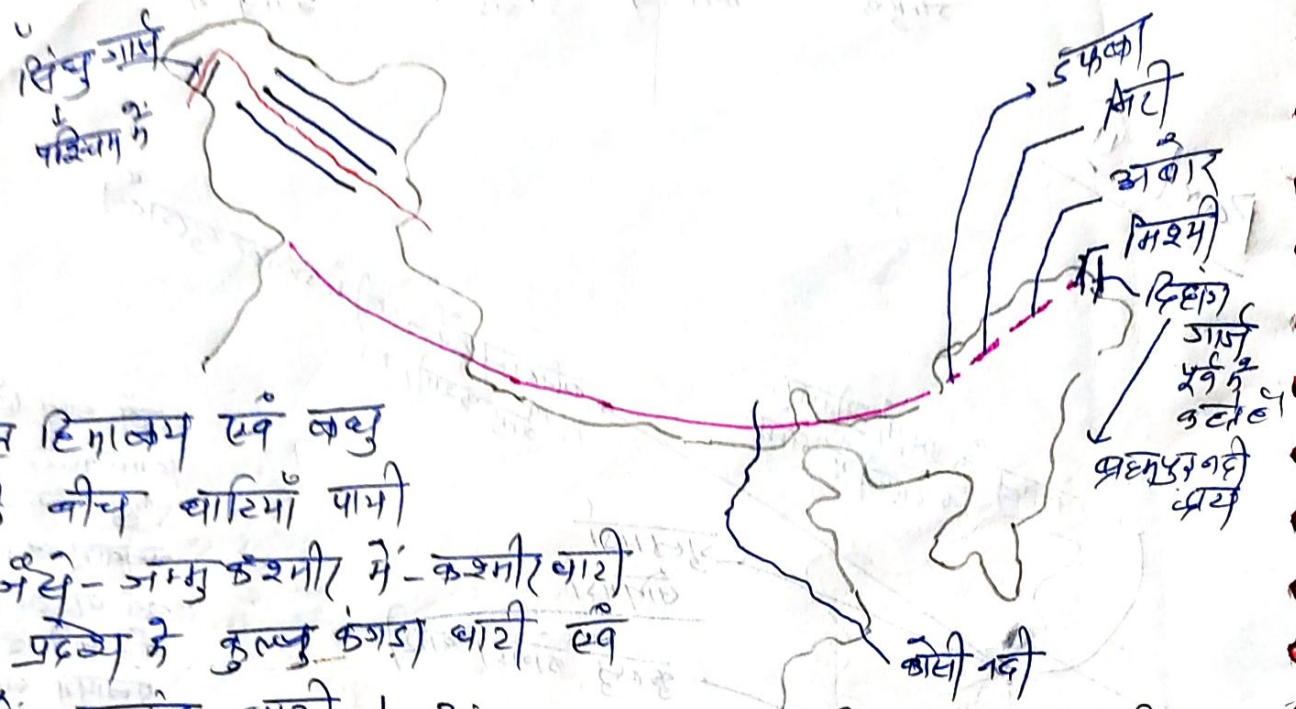 सिंधु गार्ज
पश्चिम में
डफला
मिरी
अबोर
मिश्मी
दिहांग
गार्ज
पूर्व में
कहते हैं
ब्रह्मपुत्र नदी
हिमालय एवं लघु
बीच घाटियाँ पायी
जैसे - जम्मु कश्मीर में - कश्मीर घाटी
प्रदेश में कुल्लु कंगड़ा घाटी एवं
कोसी नदी